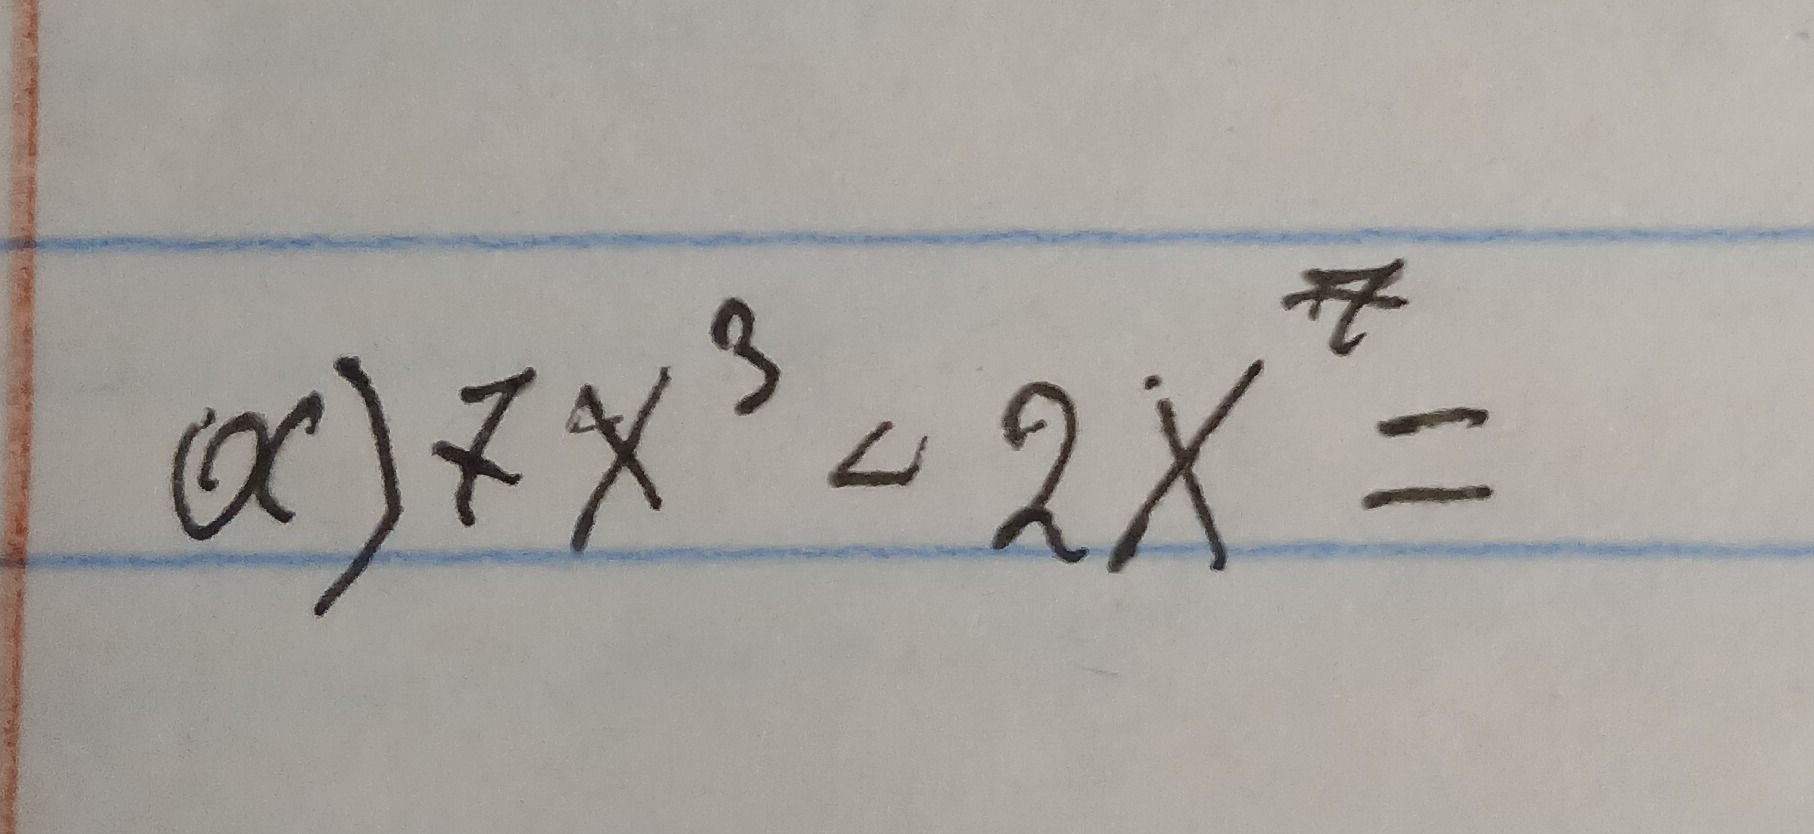 a) 7x³ - 2x⁷ =